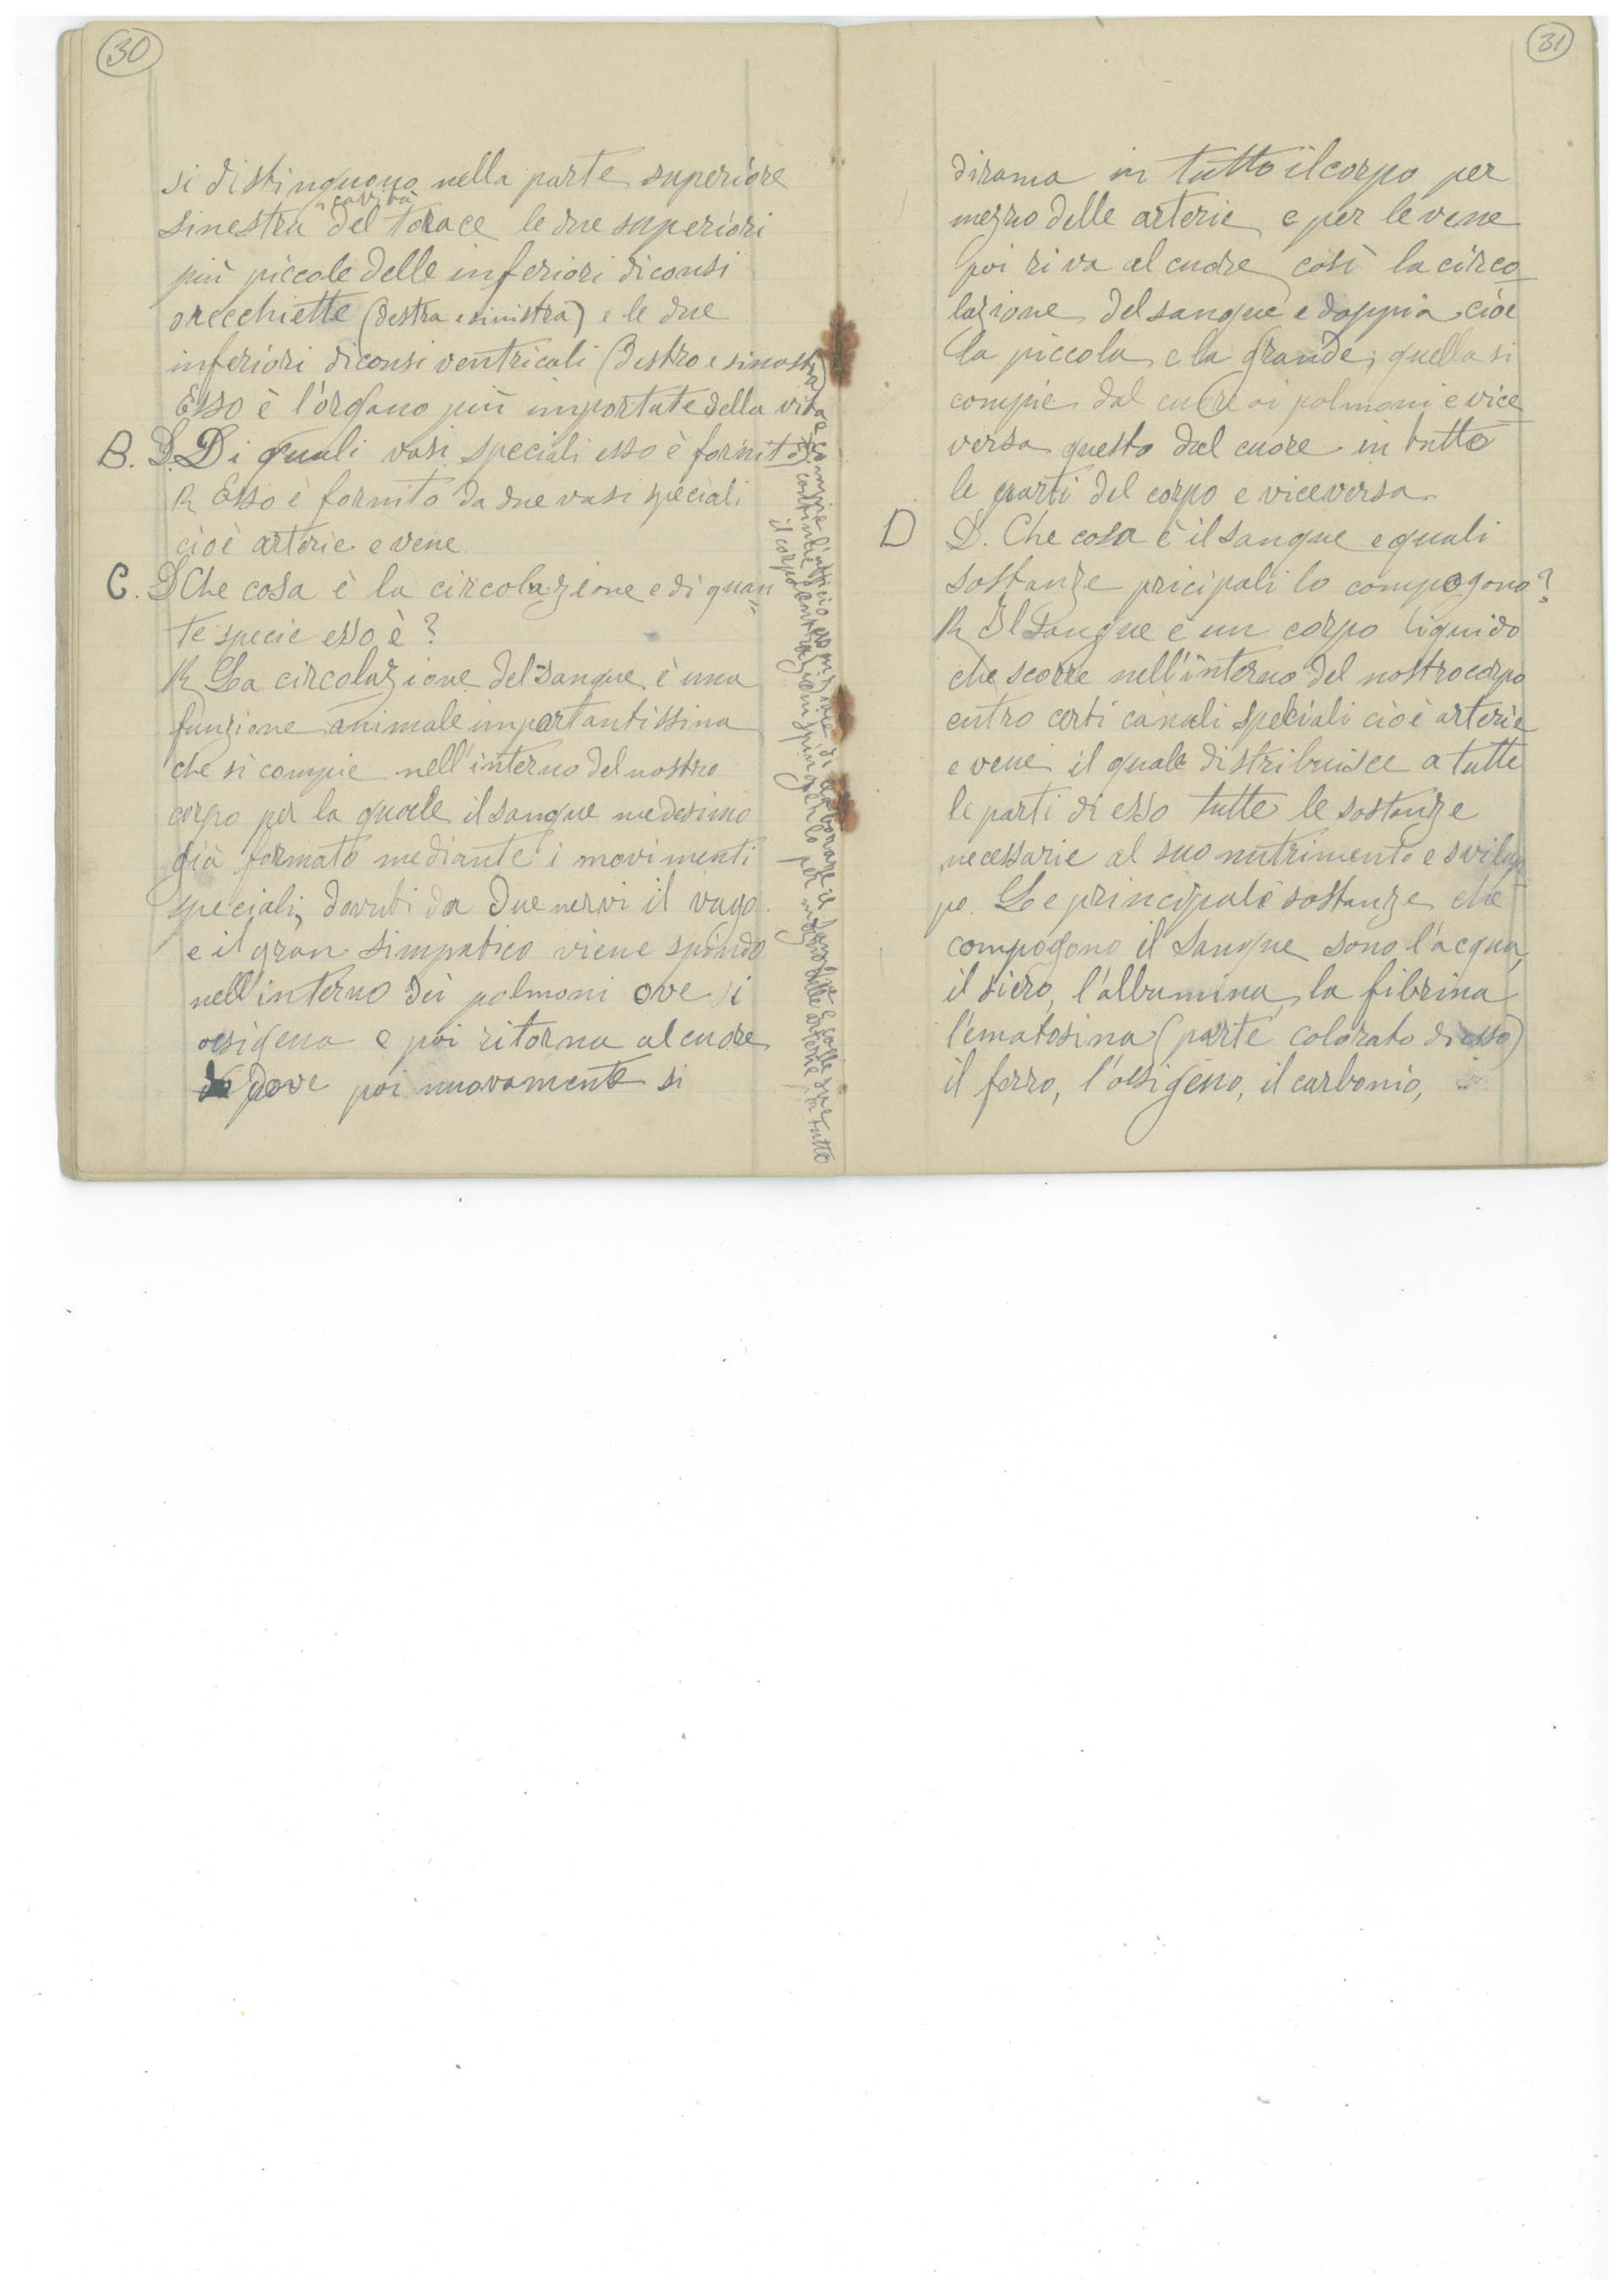 30
si distinguono nella parte superiore
cavità
sinestra del torace le due superiori
più piccole delle inferiori diconsi
orecchiette (destra e sinistra) e le due
inferiori diconsi ventricoli (destro e sinostra)
Esso è l'órgano più importate della vita
B. D. Di quali vasi speciali esso è fornito?
R Esso è fornito da due vasi speciali
cioè arterie e vene.
C. D Che cosa è la circolazione e di quan=
te specie esso è?
R La circolazione del sangue è una
funzione animale importantissima
che si compie nell'interno del nostro
corpo per la quale il sangue medesimo
già formato mediante i movimenti
speciali, dovuti da due nervi il vago
e il gran simpatico viene spindo
nell'interno dei polmoni ove si
ossigena e poi ritorna al cuore
da dove poi nuovamente si
e compie l'ufficio di elaborare il sangue e colle sue
continue contrazioni spingerlo per mezzo delle arterie, in tutto
il corpo
31
dirama in tutto il corpo per
mezzo delle arterie e per le vene
poi ri va al cuore così la circo
lazione del sangue e doppia cioè
la piccola e la grande; quella si
compie dal cuore ai polmoni e vice
versa questo dal cuore in tutto
le parti del corpo e viceversa.
D D. Che cosa è il sangue e quali
sostanze pricipali lo compogono?
R Il Sangue è un corpo liquido
che scorre nell'interno del nostro corpo
entro certi canali speciali cioè arterie
e vene il quale distribuisce a tutte
le parti di esso tutte le sostanze
necessarie al suo nutrimento e svilup
po. Le principale sostanze che
compogono il sangue sono l'acqua,
il siero, l'albumina, la fibrina
l'ematosina (parte colorato di esso)
il ferro, l'ossigeno, il carbonio,